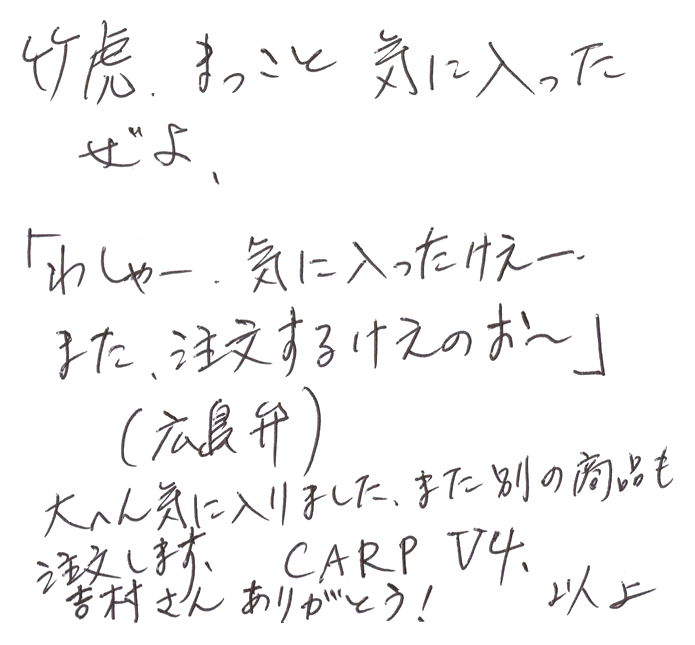 竹虎、まっこと 気に入った
ぜよ、
「わしゃー、気に入ったけえー、
また、注文するけえのお〜」
(広島弁)
大へん気に入りました、また別の商品も
注文します、 CARP V4、
吉村さん ありがとう! 以上